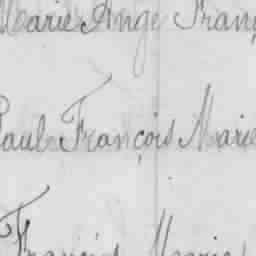 Marie Ange Franç
Paul François Marie
Francis Marie